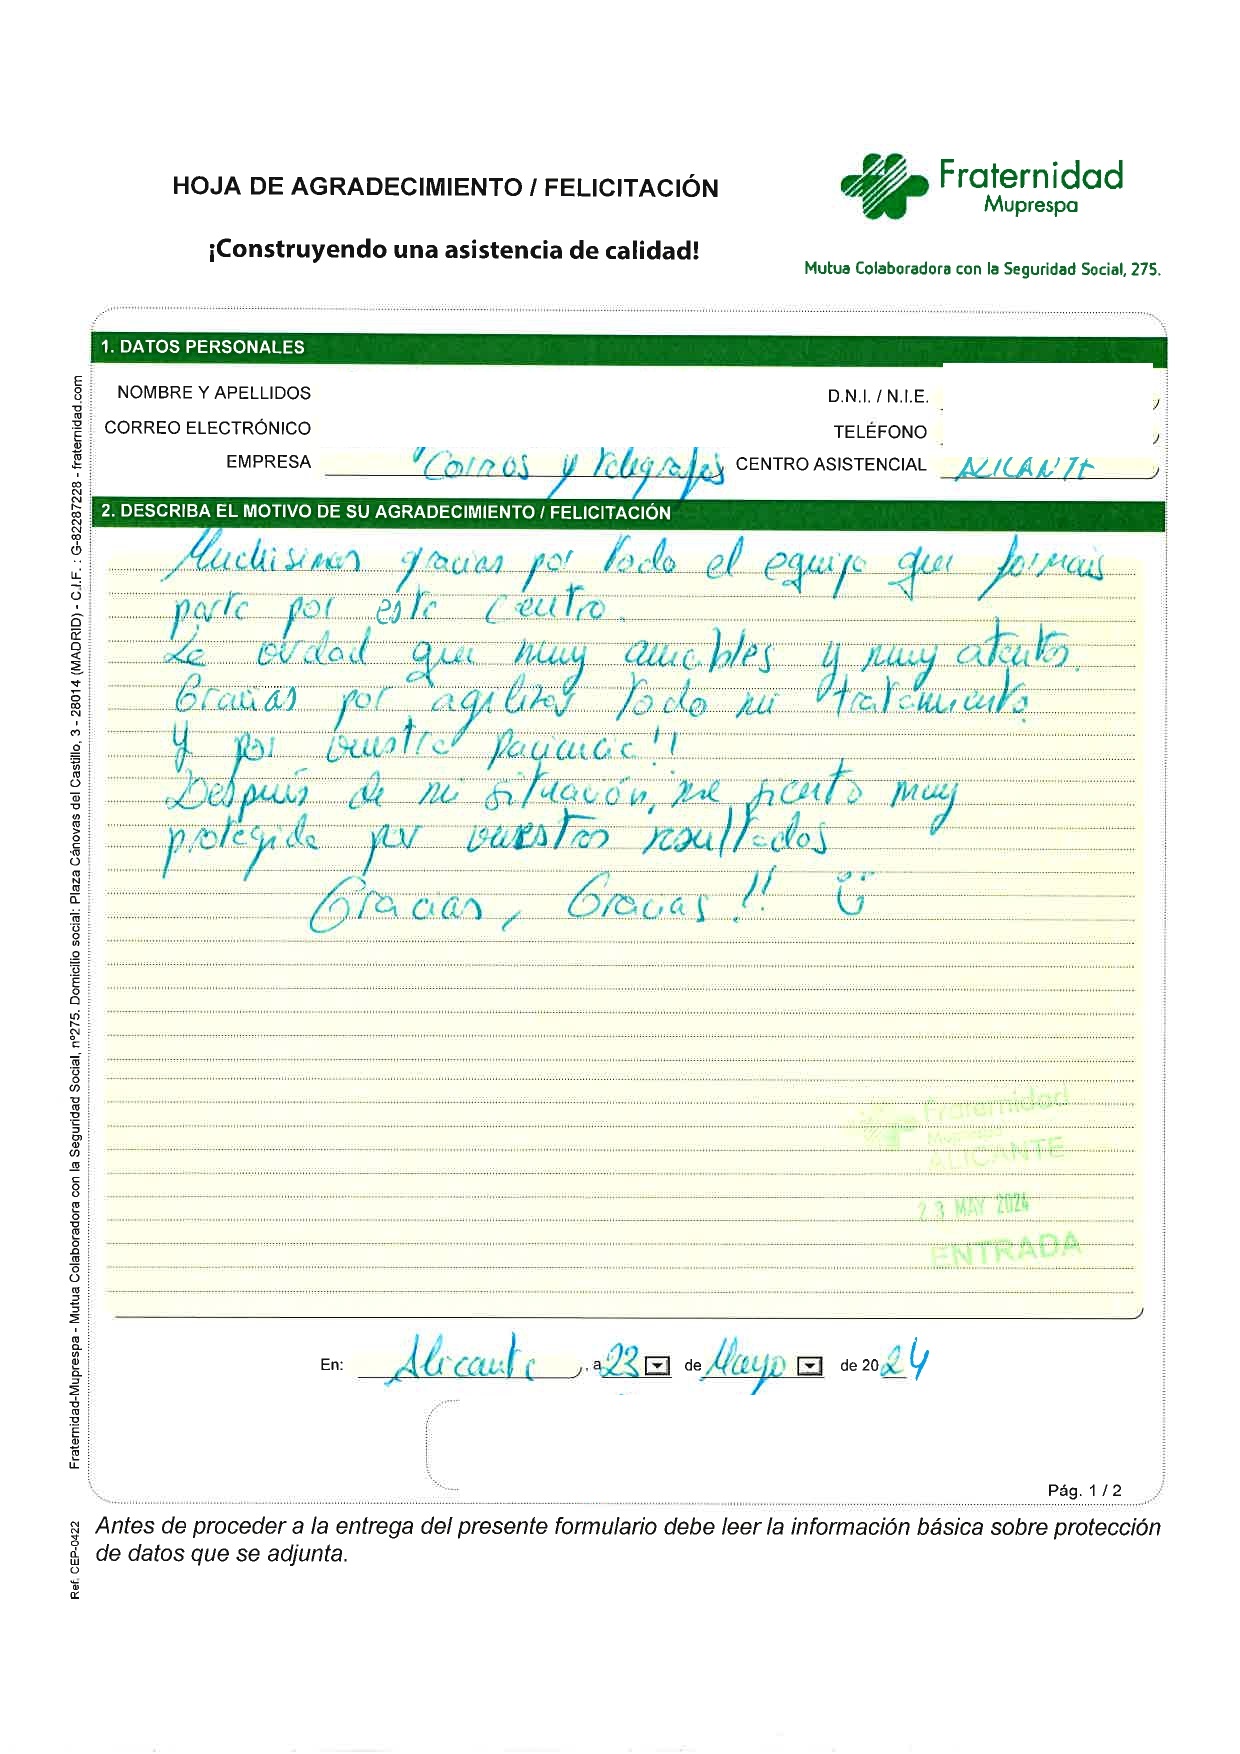 HOJA DE AGRADECIMIENTO / FELICITACIÓN
¡Construyendo una asistencia de calidad!
Fraternidad
Muprespa
Mutua Colaboradora con la Seguridad Social, 275.
1. DATOS PERSONALES
NOMBRE Y APELLIDOS
D.N.I. / N.I.E.
CORREO ELECTRÓNICO
TELÉFONO
EMPRESA Correos y Telégrafos CENTRO ASISTENCIAL ALICANTE
2. DESCRIBA EL MOTIVO DE SU AGRADECIMIENTO / FELICITACIÓN
Muchisimas gracias por todo el equipo que formais
parte por este centro.
La verdad que muy amables y muy atentos.
Gracias por agilizar todo mi tratamiento
y por vuestra paciencia!!
Después de mi situación, me siento muy
protegida por vuestros resultados
Gracias, Gracias!!
Fraternidad
Muprespa
ALICANTE
23 MAY 2024
ENTRADA
En: Alicante, a 23 de Mayo de 2024
Pág. 1 / 2
Antes de proceder a la entrega del presente formulario debe leer la información básica sobre protección
de datos que se adjunta.
Fraternidad-Muprespa - Mutua Colaboradora con la Seguridad Social, nº275. Domicilio social: Plaza Cánovas del Castillo, 3 - 28014 (MADRID) - C.I.F. : G-82287228 - fraternidad.com
Ref. CEP-0422